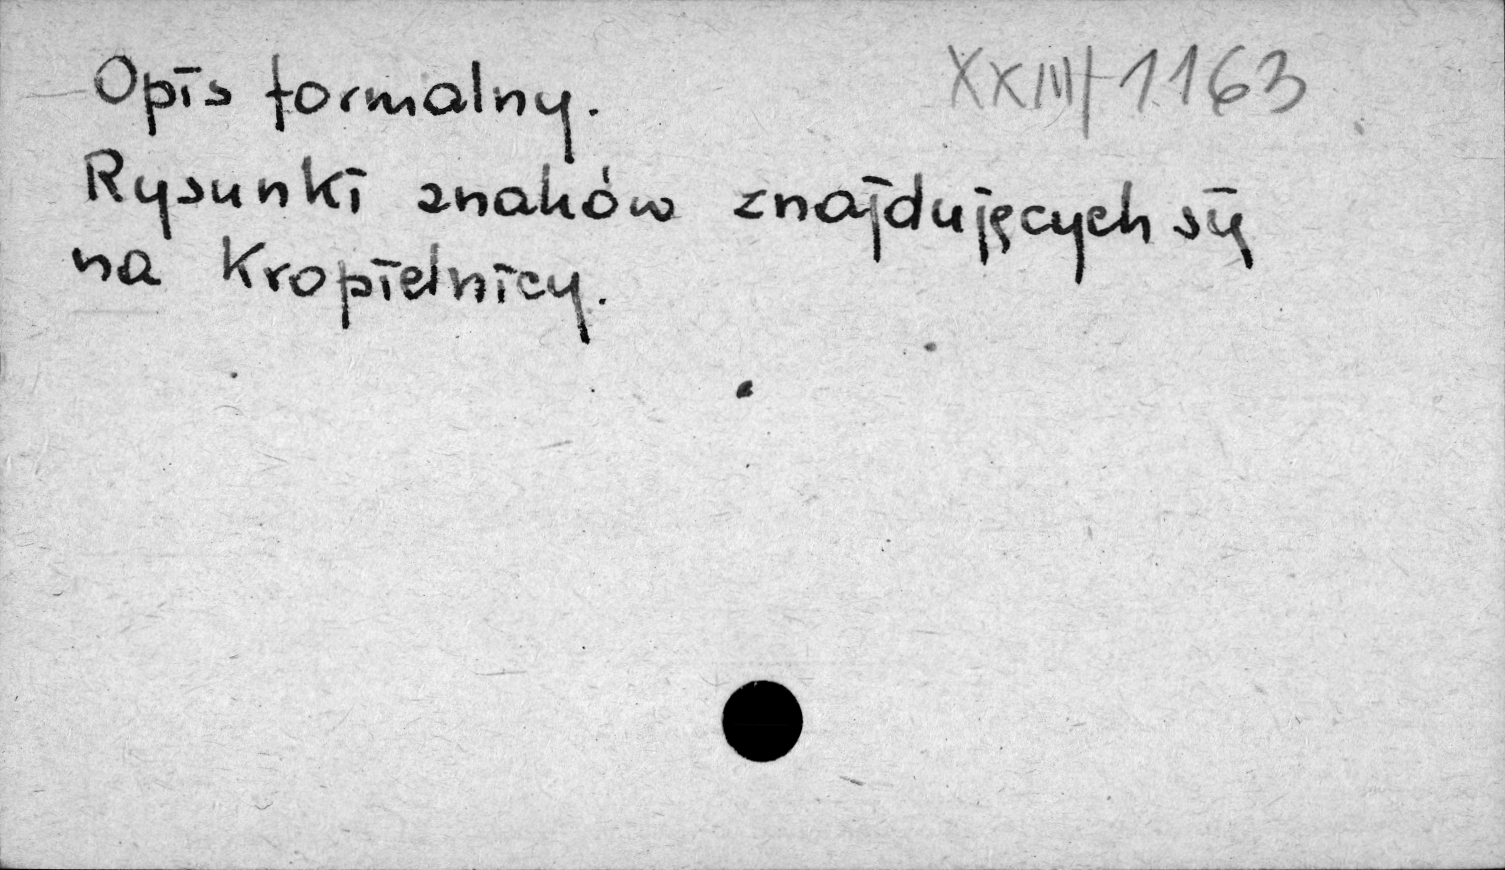 Opis formalny. XXIII/1163
Rysunki znaków znajdujących się
na Kropielnicy.